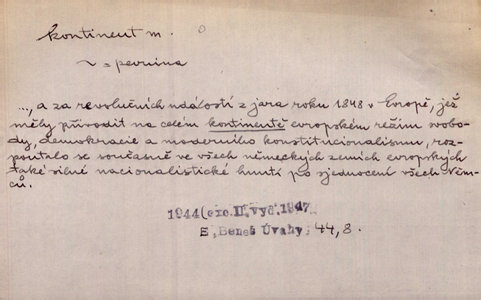 kontinent m.
~ = pevnina
..., a za revolučních událostí z jara roku 1848 v Evropě, jež
měly přivodit na celém kontinentě evropském režim svobo-
dy, demokracie a moderního konstitucionalismu, roz-
poutalo se současně ve všech německých zemích evropských
také silné nacionalistické hnutí po sjednocení všech Něm-
ců.
1944(exc.II.vyd.1947
E. Beneš Úvahy, 44, 8.